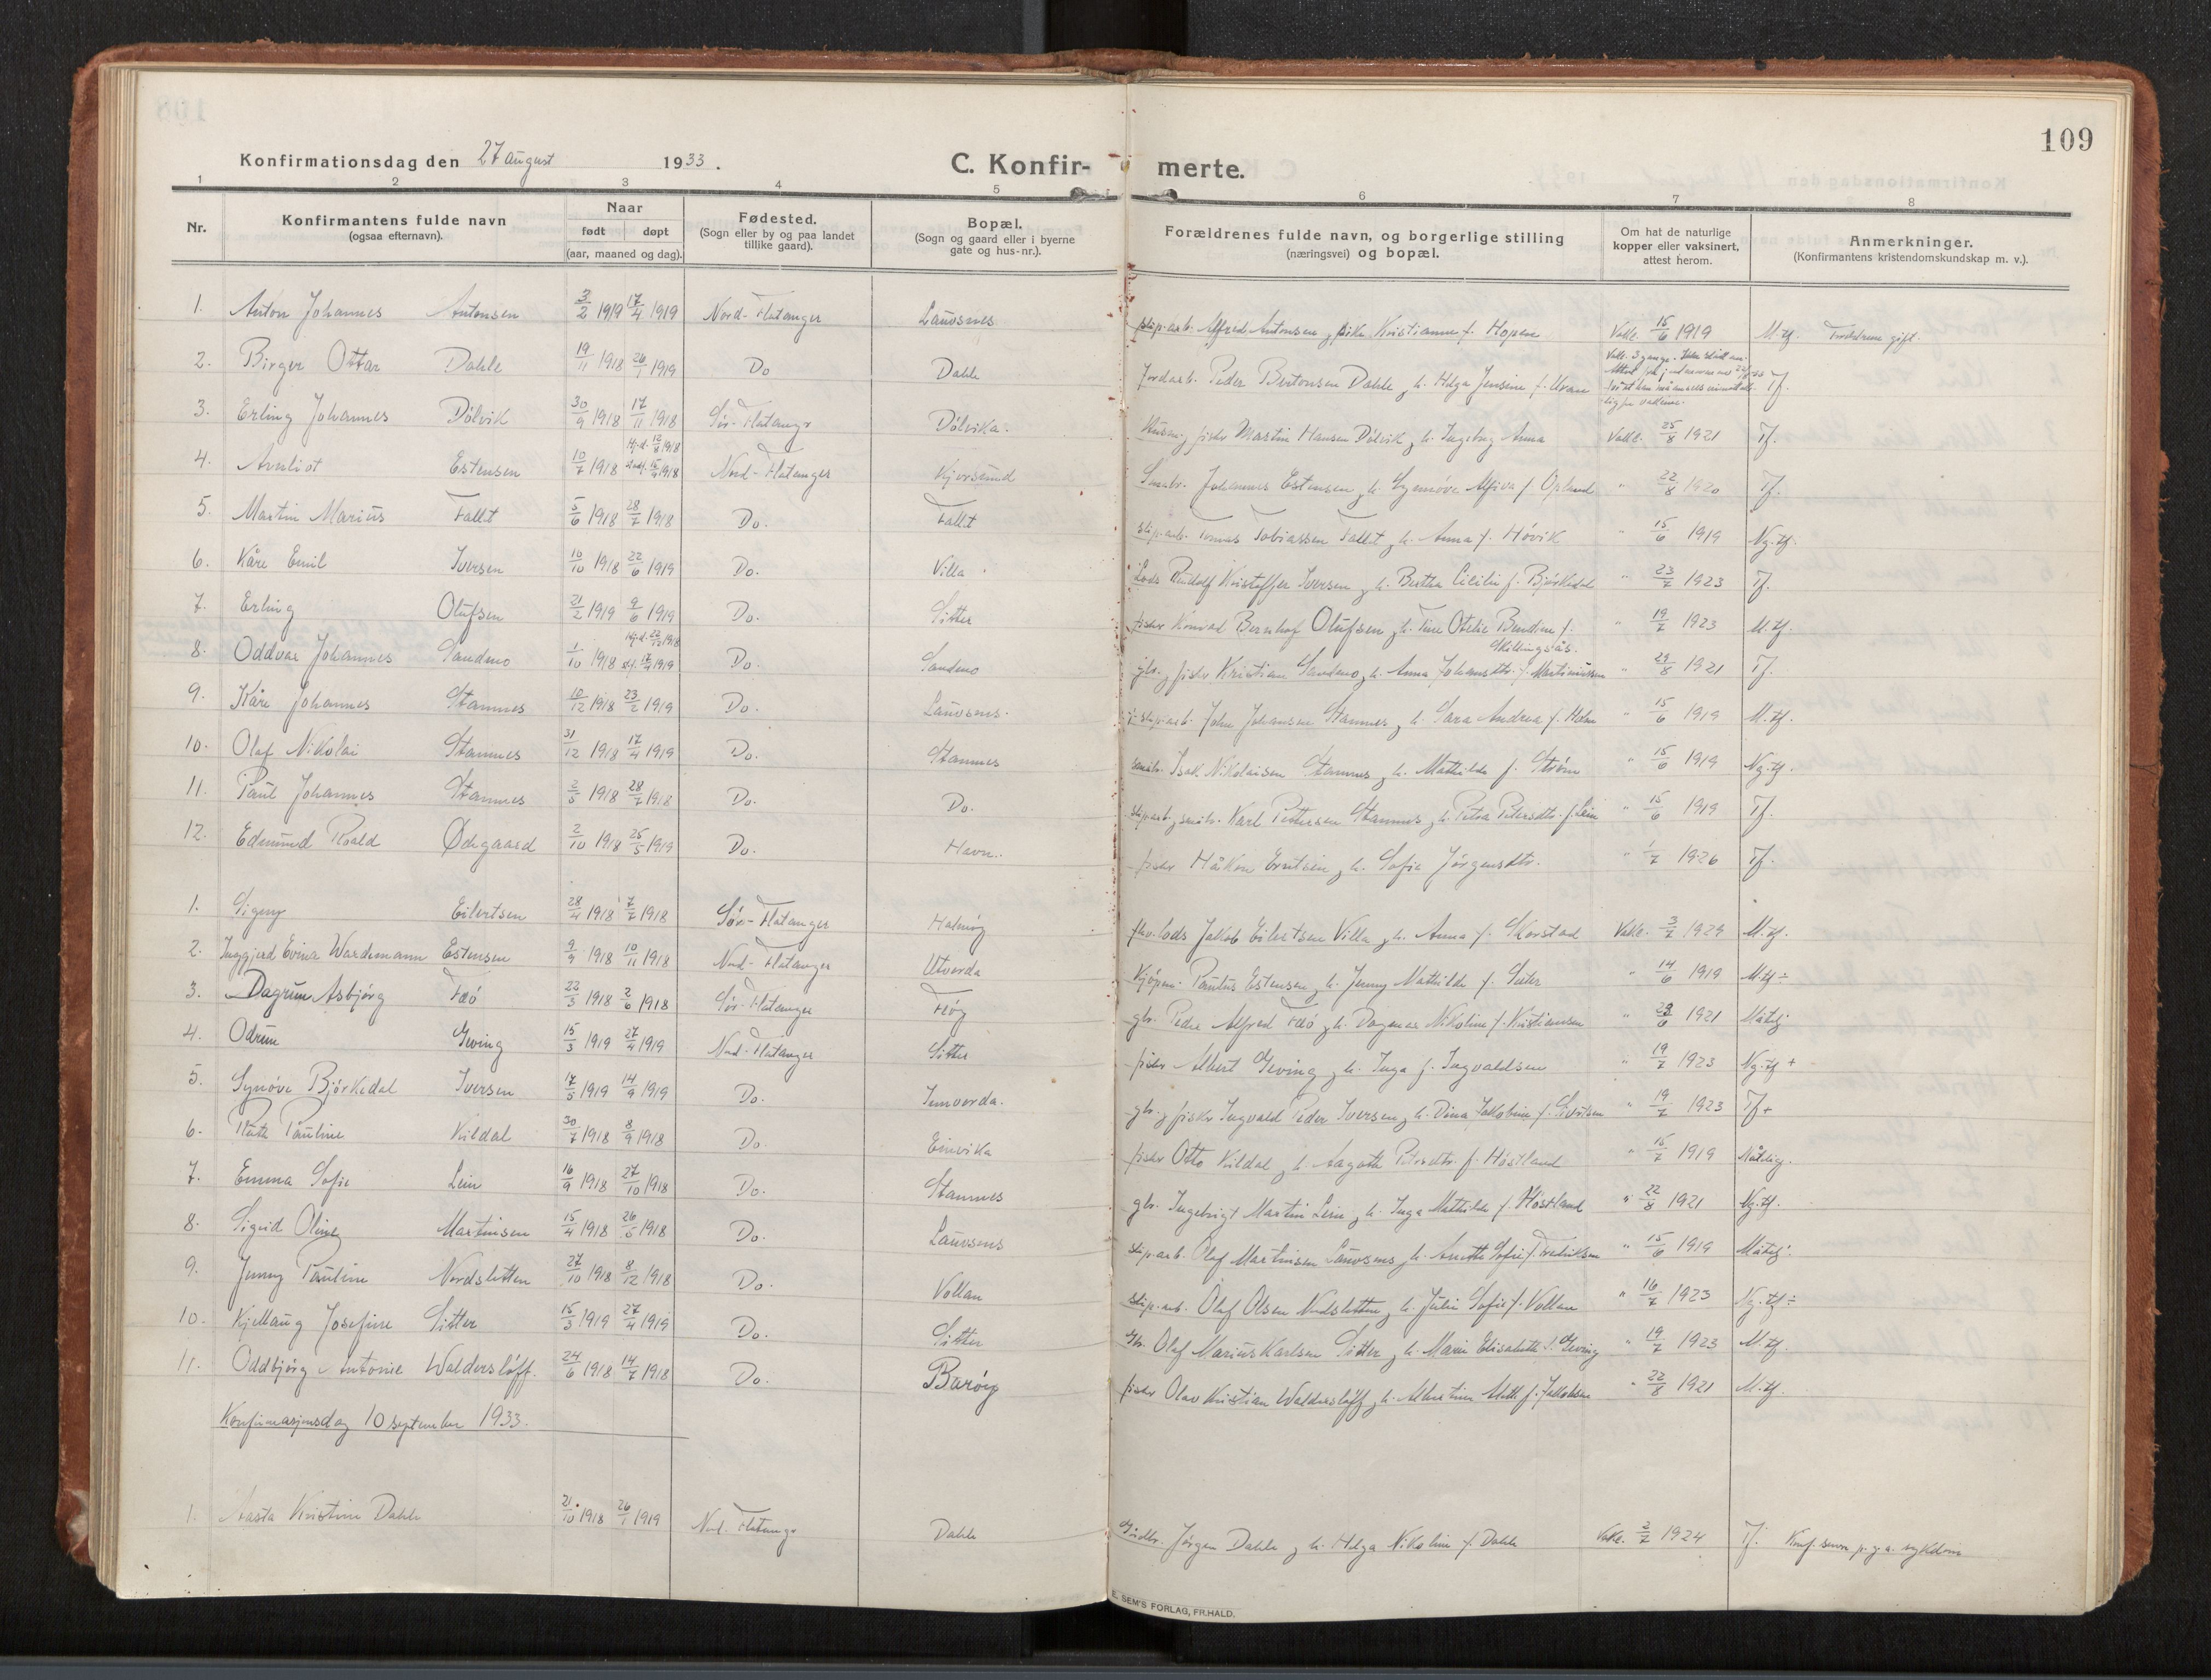 109
Konfirmationsdag den 27 august 1933.
C. Konfir- merte.
1 2 3 4 5 6 7 8
Nr. Konfirmantens fulde navn (ogsaa efternavn). Naar født døpt (aar, maaned og dag). Fødested. (Sogn eller by og paa landet tillike gaard). Bopæl. (Sogn og gaard eller i byerne gate og hus-nr.). Forældrenes fulde navn, og borgerlige stilling (næringsvei) og bopæl. Om hat de naturlige kopper eller vaksinert, attest herom. Anmerkninger. (Konfirmantens kristendomskundskap m. v.).
1. Anton Johannes Antonsen 3/2 1919 17/4 1919 Nord-Flatanger Lauvsnes slip.arb. Alfred Antonsen Kristianne f. Hopen Vakc. 15/6 1919 M.tf. Foreldrene gift.
2. Birger Ottar Dahle 19/11 1918 26/1 1919 Do Dahle Jordarb. Peder Bertonsen Dahle h. Helga Jensine f. Vakc. 3 gange. Tf.
3. Erling Johannes Dølvik 30/9 1918 17/11 1918 Sør-Flatangr Dølvika. fisker Martin Hansen Dølvik h. Ingebrg Anna Vakc. 25/8 1921 Tf.
4. Arnliot Estensen 10/7 1918 Hj.d. 12/6 1918 Nord-Flatanger Kjørsund Smabr. Johannes Estensen h. Alfiva f. Opland " 22/8 1920 Tf.
5. Martin Marius Fallet 5/6 1918 28/7 1918 Do. Fallet slip.arb. Tomas Tobiassen Fallet h. Anna f. Høvik " 15/6 1919 Ng.tf.
6. Kåre Emil Iversen 10/10 1918 22/6 1919 Do. Villa Lods Rudolf Kristoffer Iversen h. Bertha Cicilie f. Bjørkedal " 23/7 1923 Tf.
7. Erling Olufsen 21/2 1919 9/6 1919 Do. Sitter fisker Konrad Bernhof Olufsen h. Tine Otelie Bendine f. Skillingsås. " 19/7 1923 M.tf.
8. Oddvar Johannes Sandmo 1/10 1918 Hj.d. 22/12 1918 stf. 17/4 1919 Do. Sandmo gbr. fisker Kristian Sandmo h. Anna Johansdtr. f. Martinussen " 29/8 1921 Tf.
9. Kåre Johannes Stamnes 10/12 1918 23/2 1919 Do. Lauvsnes. slip.arb. John Johansen Stamnes h. Sara Andrea f. Holm " 15/6 1919 M.tf.
10. Olaf Nikolai Stamnes 31/12 1918 17/4 1919 Do. Stamnes småbr. Isak Nikolaisen Stamnes h. Mathilde f. Strøm " 15/6 1919 Ng.tf.
11. Paul Johannes Stamnes 2/5 1918 28/7 1918 Do. Do. slip.arb. småbr. Karl Pettersen Stamnes h. Petra Petersdtr. f. Lein " 15/6 1919 Tf.
12. Edmund Roald Ødegaard 2/10 1918 25/5 1919 Do. Havn. fisker Håkon Erntsen h. Sofie Jørgensdtr. " 1/7 1926 Tf.
1. Signy Eilertsen 28/4 1918 7/7 1918 Sør-Flatanger Halmøy lods Jakob Eilertsen Villa h. Anna f. Skorstad Vakc. 3/7 1929 M.tf.
2. Inggjerd Evina Wardemann Estensen 9/9 1918 10/11 1918 Nord-Flatanger Utvorda Kjøpm. Paulus Estensen h. Jenny Mathilde f. Sæter " 14/6 1919 M.tf ÷
3. Dagrun Asbjørg Fæø 22/3 1918 2/6 1918 Sør-Flatanger Fløy gbr. Peder Alfred Fæø h. Dagmar Nikoline f. Kristiansen " 23/6 1921 Måtelg.
4. Odrun Geving 15/3 1919 27/4 1919 Nord-Flatanger Sitter fisker Albert Geving h. Inga f. Ingvaldsen " 19/7 1923 Ng.tf +
5. Synøve Bjørkedal Iversen 17/5 1919 14/9 1919 Do. Innvorda. gbr. fisker Ingvald Peder Iversen h. Dina Jakobine f. Sivertsen " 19/7 1923 Tf +
6. Ruth Pauline Kildal 30/7 1918 8/9 1918 Do. Einvika fisker Otto Kildal h. Aagoth Petersdtr. f. Høstland " 15/7 1919 Måtelig.
7. Emma Sofie Lein 16/9 1918 27/10 1918 Do. Stamnes gbr. Ingebrigt Martin Lein h. Inga Mathilde f. Høstland " 22/8 1921 Ng.tf.
8. Sigrid Oline Martinsen 15/4 1918 26/5 1918 Do. Lauvsnes slip.arb. Olaf Martinsen Lauvsnes h. Anette Sofie f. Fredriksen " 15/6 1919 Måtelg.
9. Jenny Pauline Nordsletten 27/10 1918 8/12 1918 Do. Vollan slip.arb. Olaf Olsen Nordsletten h. Julie Sofie f. Vollan " 16/7 1923 Ng.tf ÷
10. Kjellaug Josefine Sitter 15/3 1919 27/4 1919 Do. Sitter gbr. Olaf Marius Karlsen Sitter h. Marie Elisabeth f. Geving " 19/7 1923 M.tf.
11. Oddbjørg Antonie Waldersløff. 24/6 1918 14/7 1918 Do. Barøy fisker Olav Kristian Waldersløff h. Albertine f. Jakobsen " 22/8 1921 M.tf.
Konfirmasjonsdag 10 september 1933.
1. Aasta Kristine Dahle 21/10 1918 26/1 1919 Nord-Flatangr Dahle Gårdbr. Jørgen Dahle h. Helga Nikoline f. Dahle Vakc. 2/7 1924 Tf. Konf. senere p. g. a. sykdom
E. SEM'S FORLAG, FR.HALD.